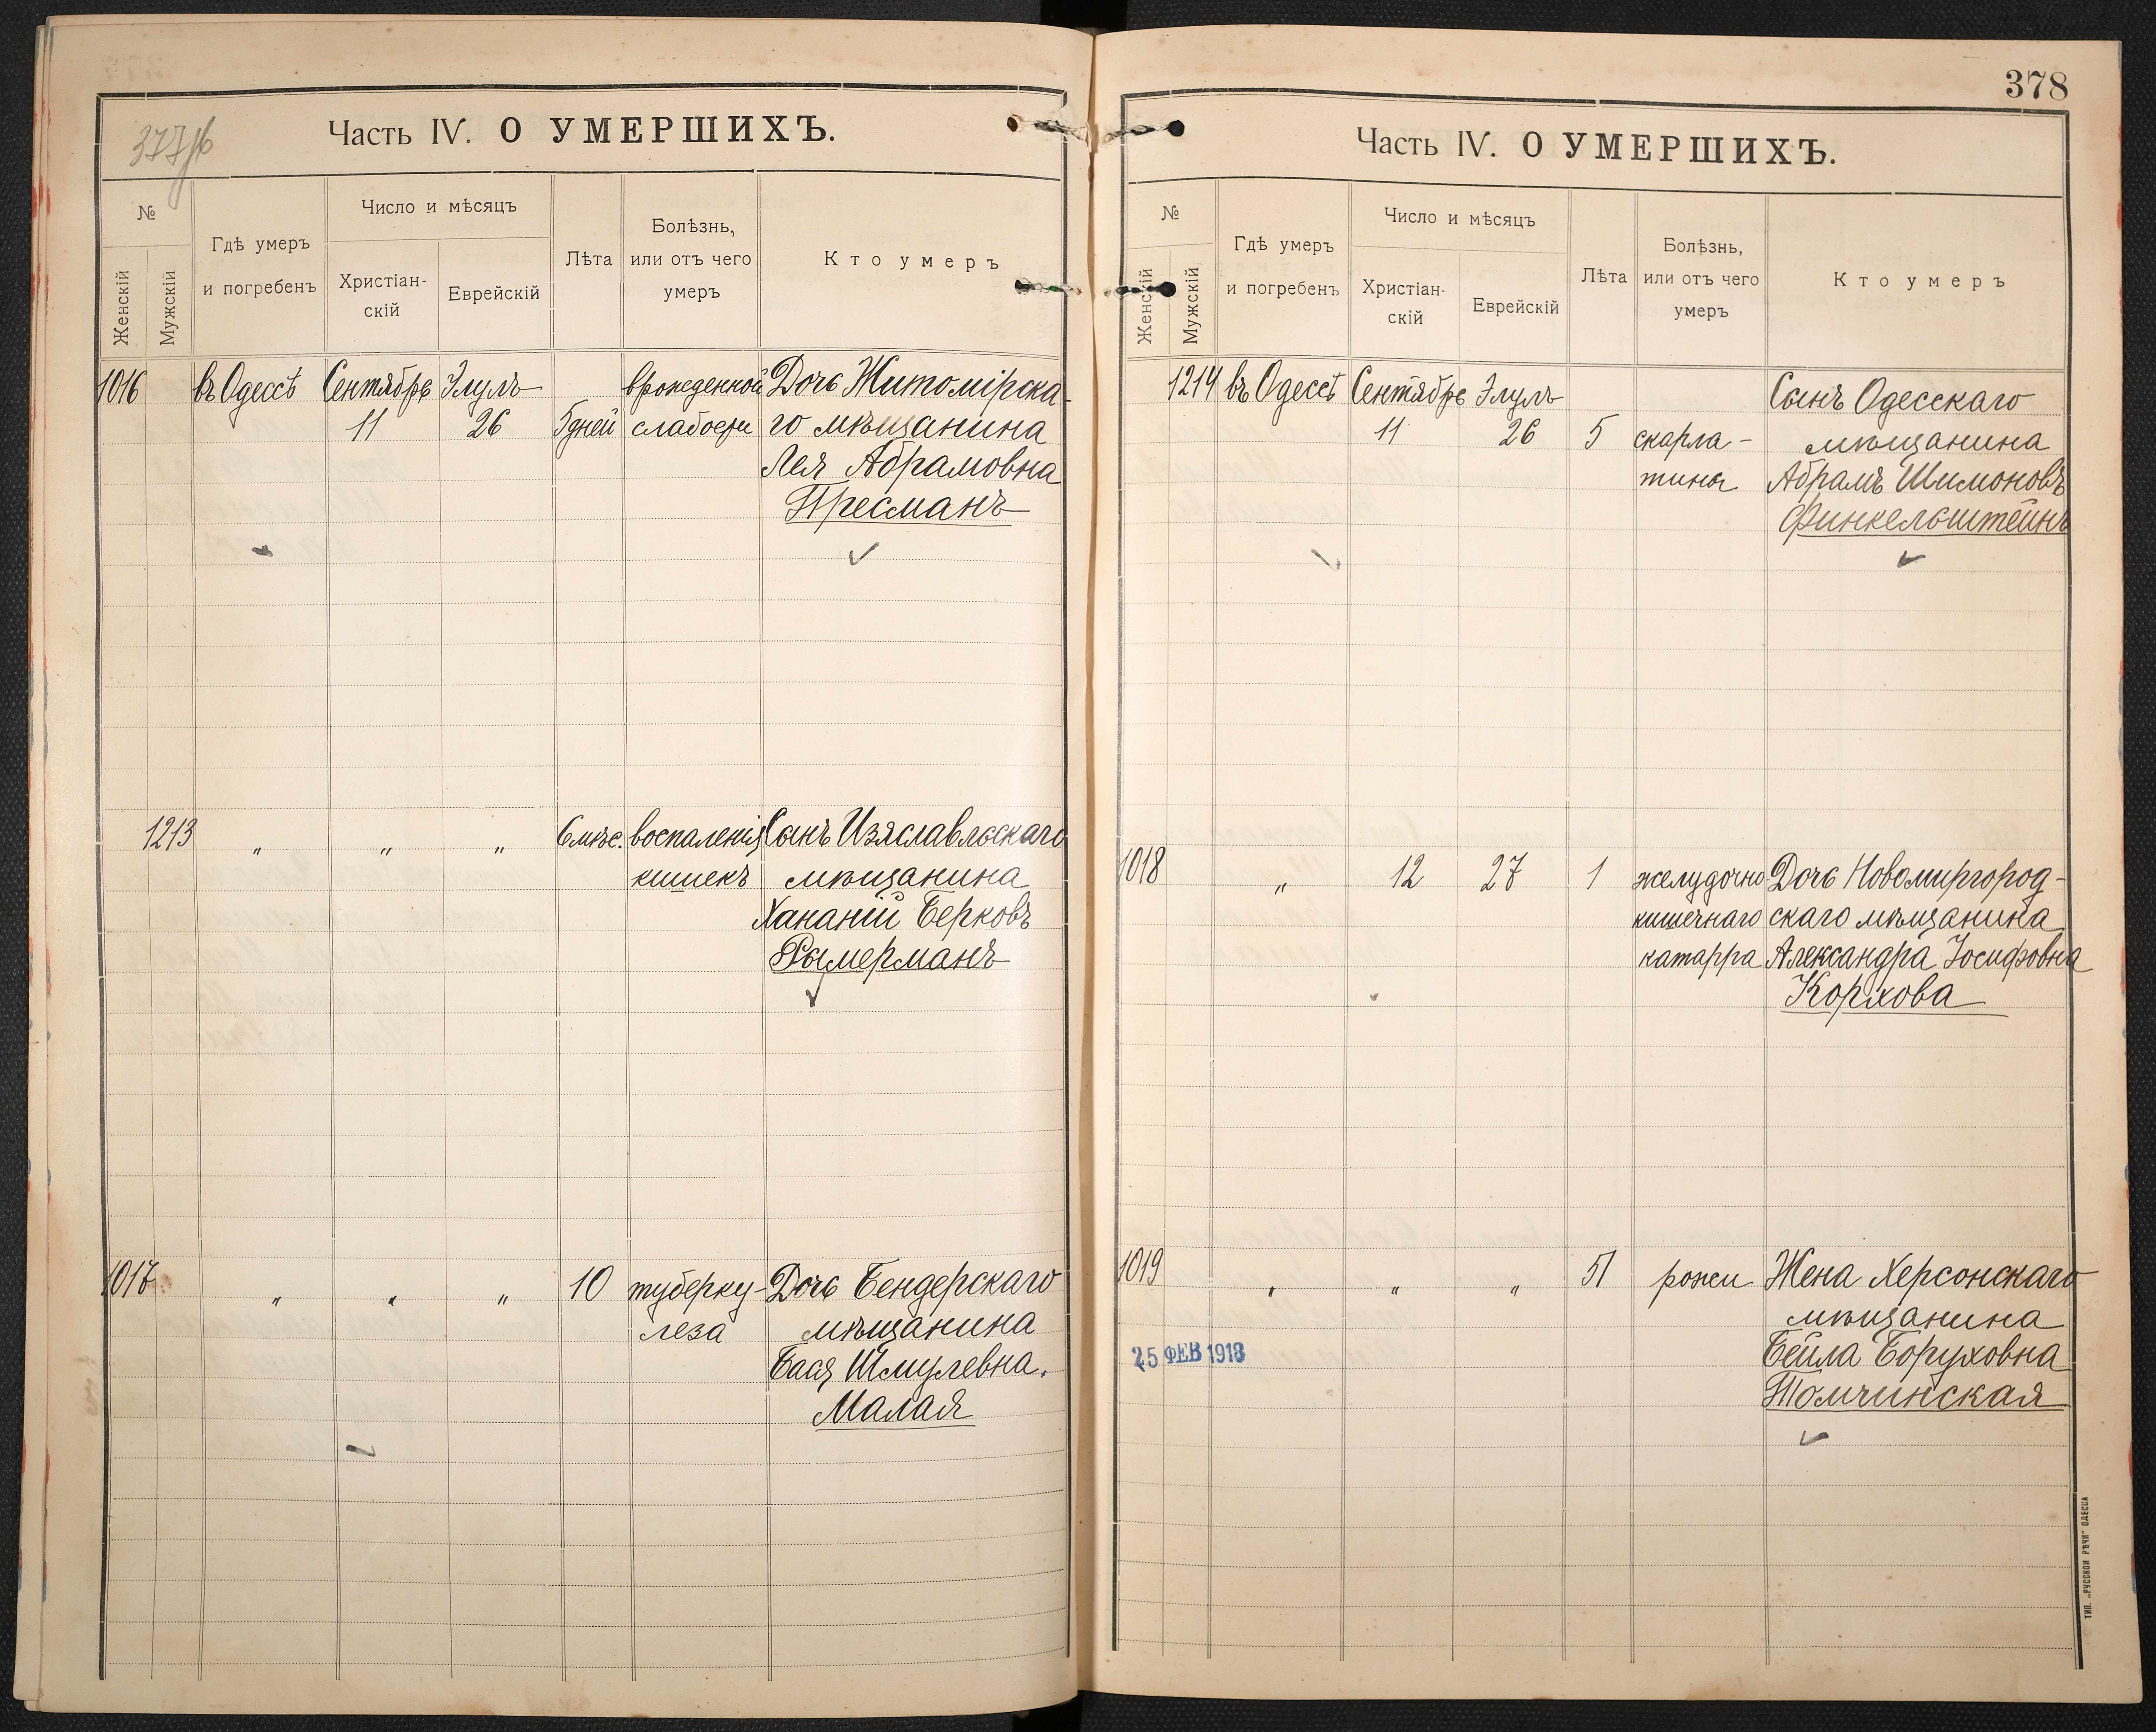 377 об
Часть IV. О УМЕРШИХЪ.
№
Женскій
Мужскій
Гдѣ умеръ
и погребенъ
Число и мѣсяцъ
Христіан-
скій
Еврейскій
Лѣта
Болѣзнь,
или отъ чего
умеръ
Кто умеръ
1016 въ Одессѣ Сентябрь Элулъ врожденной Дочь Житомірска-
11 26 5 дней слабости го мѣщанина
Лея Абрамовна
Пресманъ
1213 " " " 6 мѣс. воспаленія Сынъ Изяславльскаго
кишекъ мѣщанина
Хананій Берковъ
Рымерманъ
1017 " " " 10 туберку- Дочь Бендерскаго
леза мѣщанина
Бася Шмулевна
Малая
378
Часть IV. О УМЕРШИХЪ.
№
Женскій
Мужскій
Гдѣ умеръ
и погребенъ
Число и мѣсяцъ
Христіан-
скій
Еврейскій
Лѣта
Болѣзнь,
или отъ чего
умеръ
Кто умеръ
1214 въ Одессѣ Сентябрь Элулъ Сынъ Одесскаго
11 26 5 скарла- мѣщанина
тины Абрамъ Шимоновъ
Финкельштейнъ
1018 " 12 27 1 желудочно Дочь Новомиргород-
кишечнаго скаго мѣщанина
катарра Александра Іосифовна
Корхова
1019 " " " 51 рожи Жена Херсонскаго
мѣщанина
25 ФЕВ 1918 Бейла Боруховна
Томчинская
ТИП. „РУССКОЙ РѢЧИ" ОДЕССА